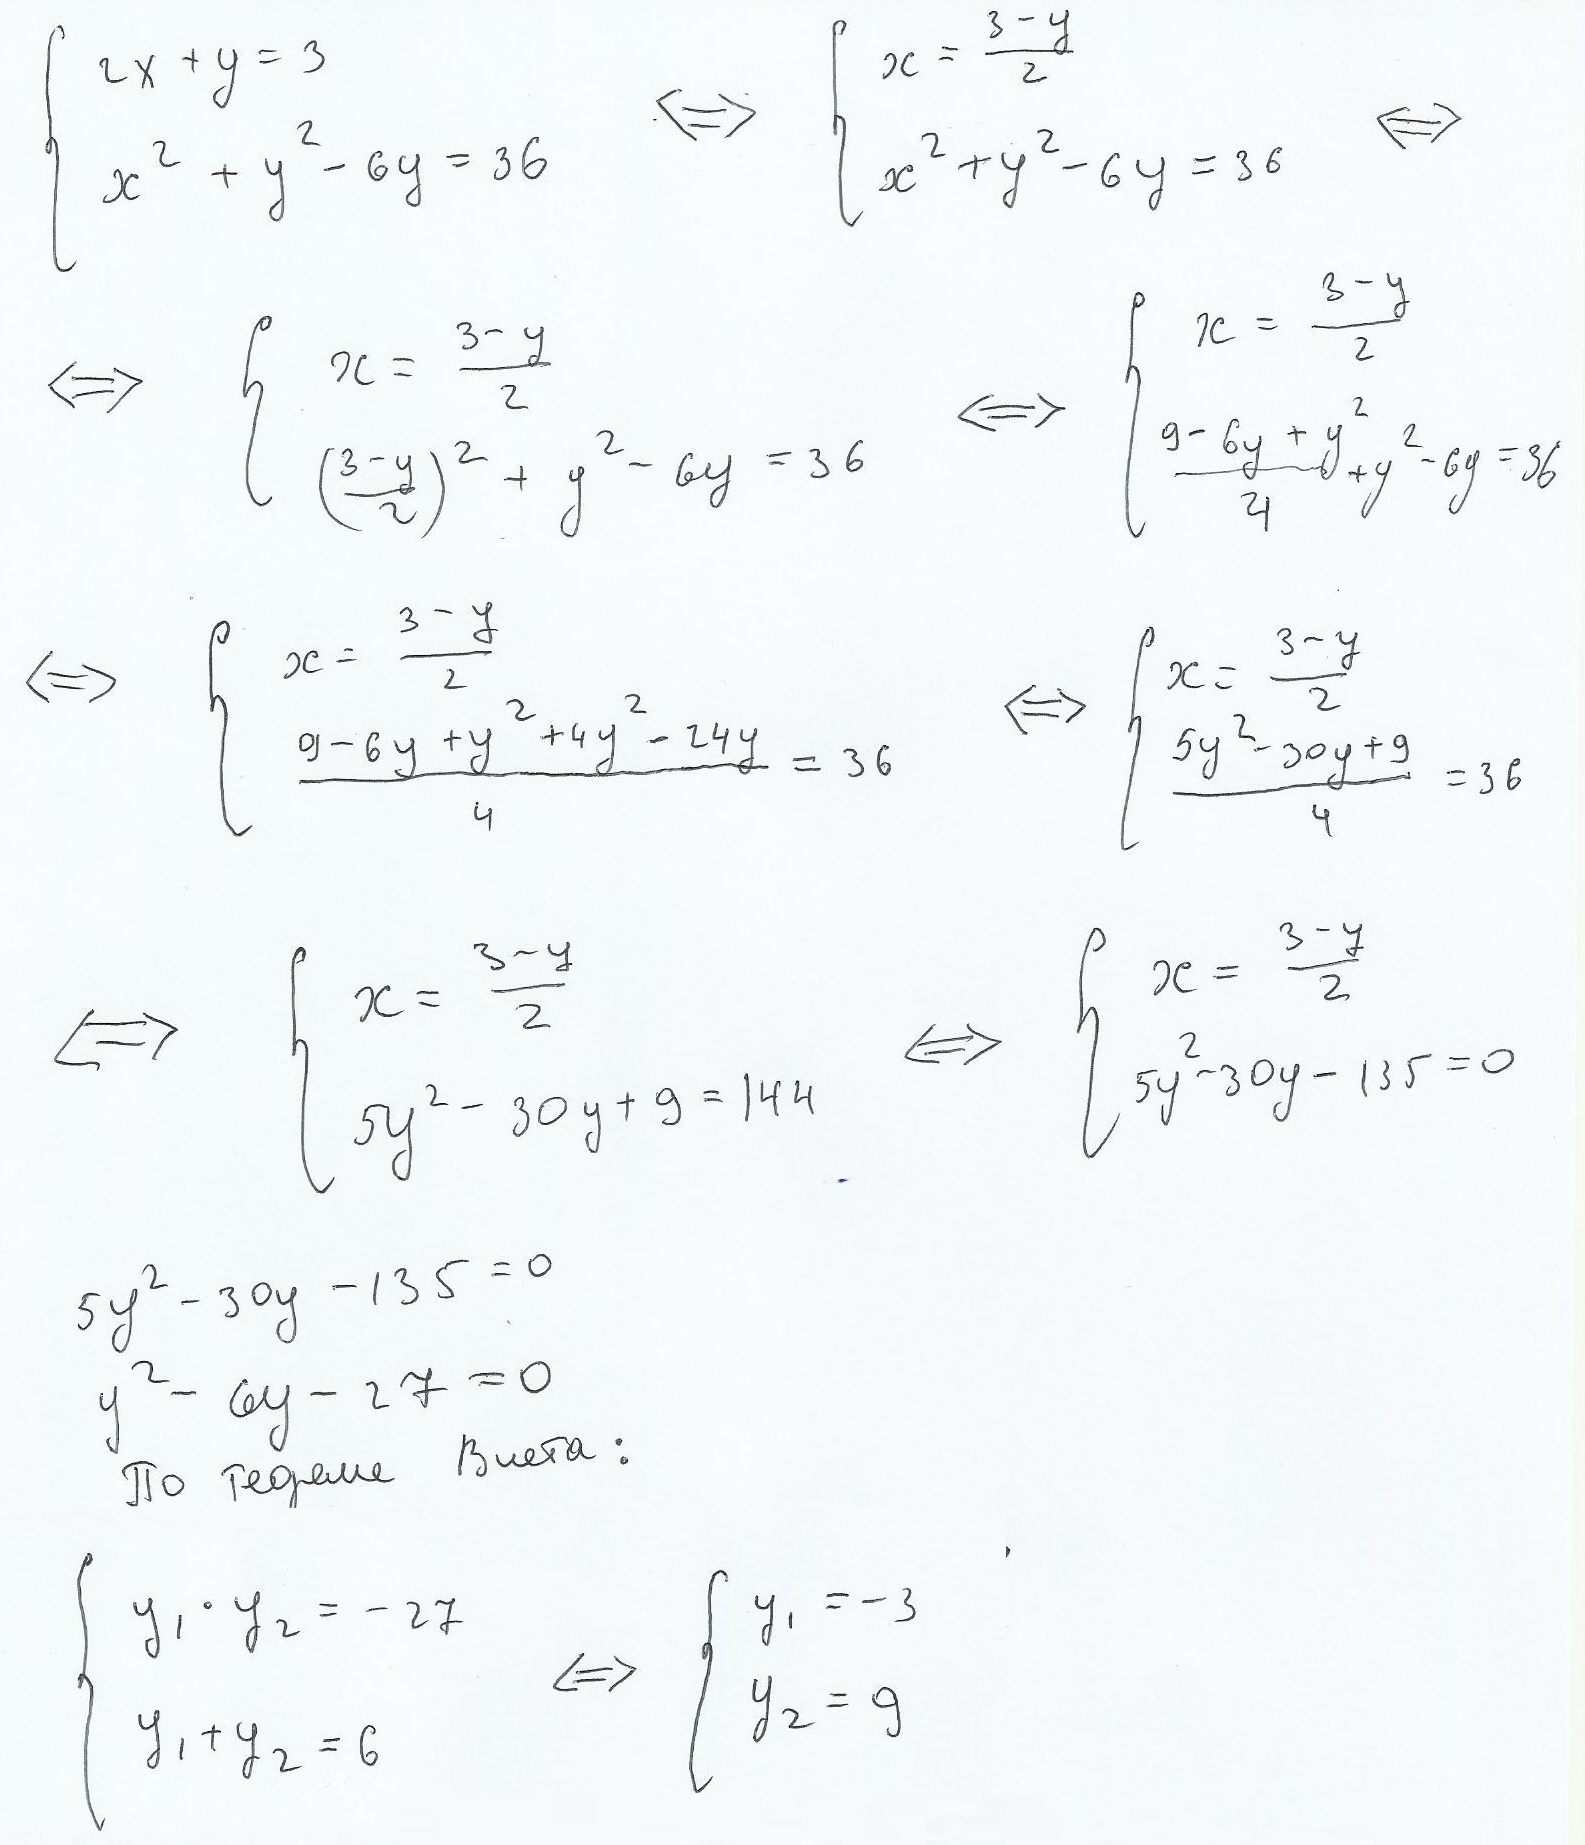 { 2x + y = 3
x² + y² - 6y = 36 <=> { x = (3-y)/2
x² + y² - 6y = 36 <=>
<=> { x = (3-y)/2
((3-y)/2)² + y² - 6y = 36 <=> { x = (3-y)/2
(9-6y+y²)/4 + y² - 6y = 36
<=> { x = (3-y)/2
(9-6y+y²+4y²-24y)/4 = 36 <=> { x = (3-y)/2
(5y²-30y+9)/4 = 36
<=> { x = (3-y)/2
5y² - 30y + 9 = 144 <=> { x = (3-y)/2
5y² - 30y - 135 = 0
5y² - 30y - 135 = 0
y² - 6y - 27 = 0
По теореме Виета:
{ y₁ · y₂ = -27
y₁ + y₂ = 6 <=> { y₁ = -3
y₂ = 9